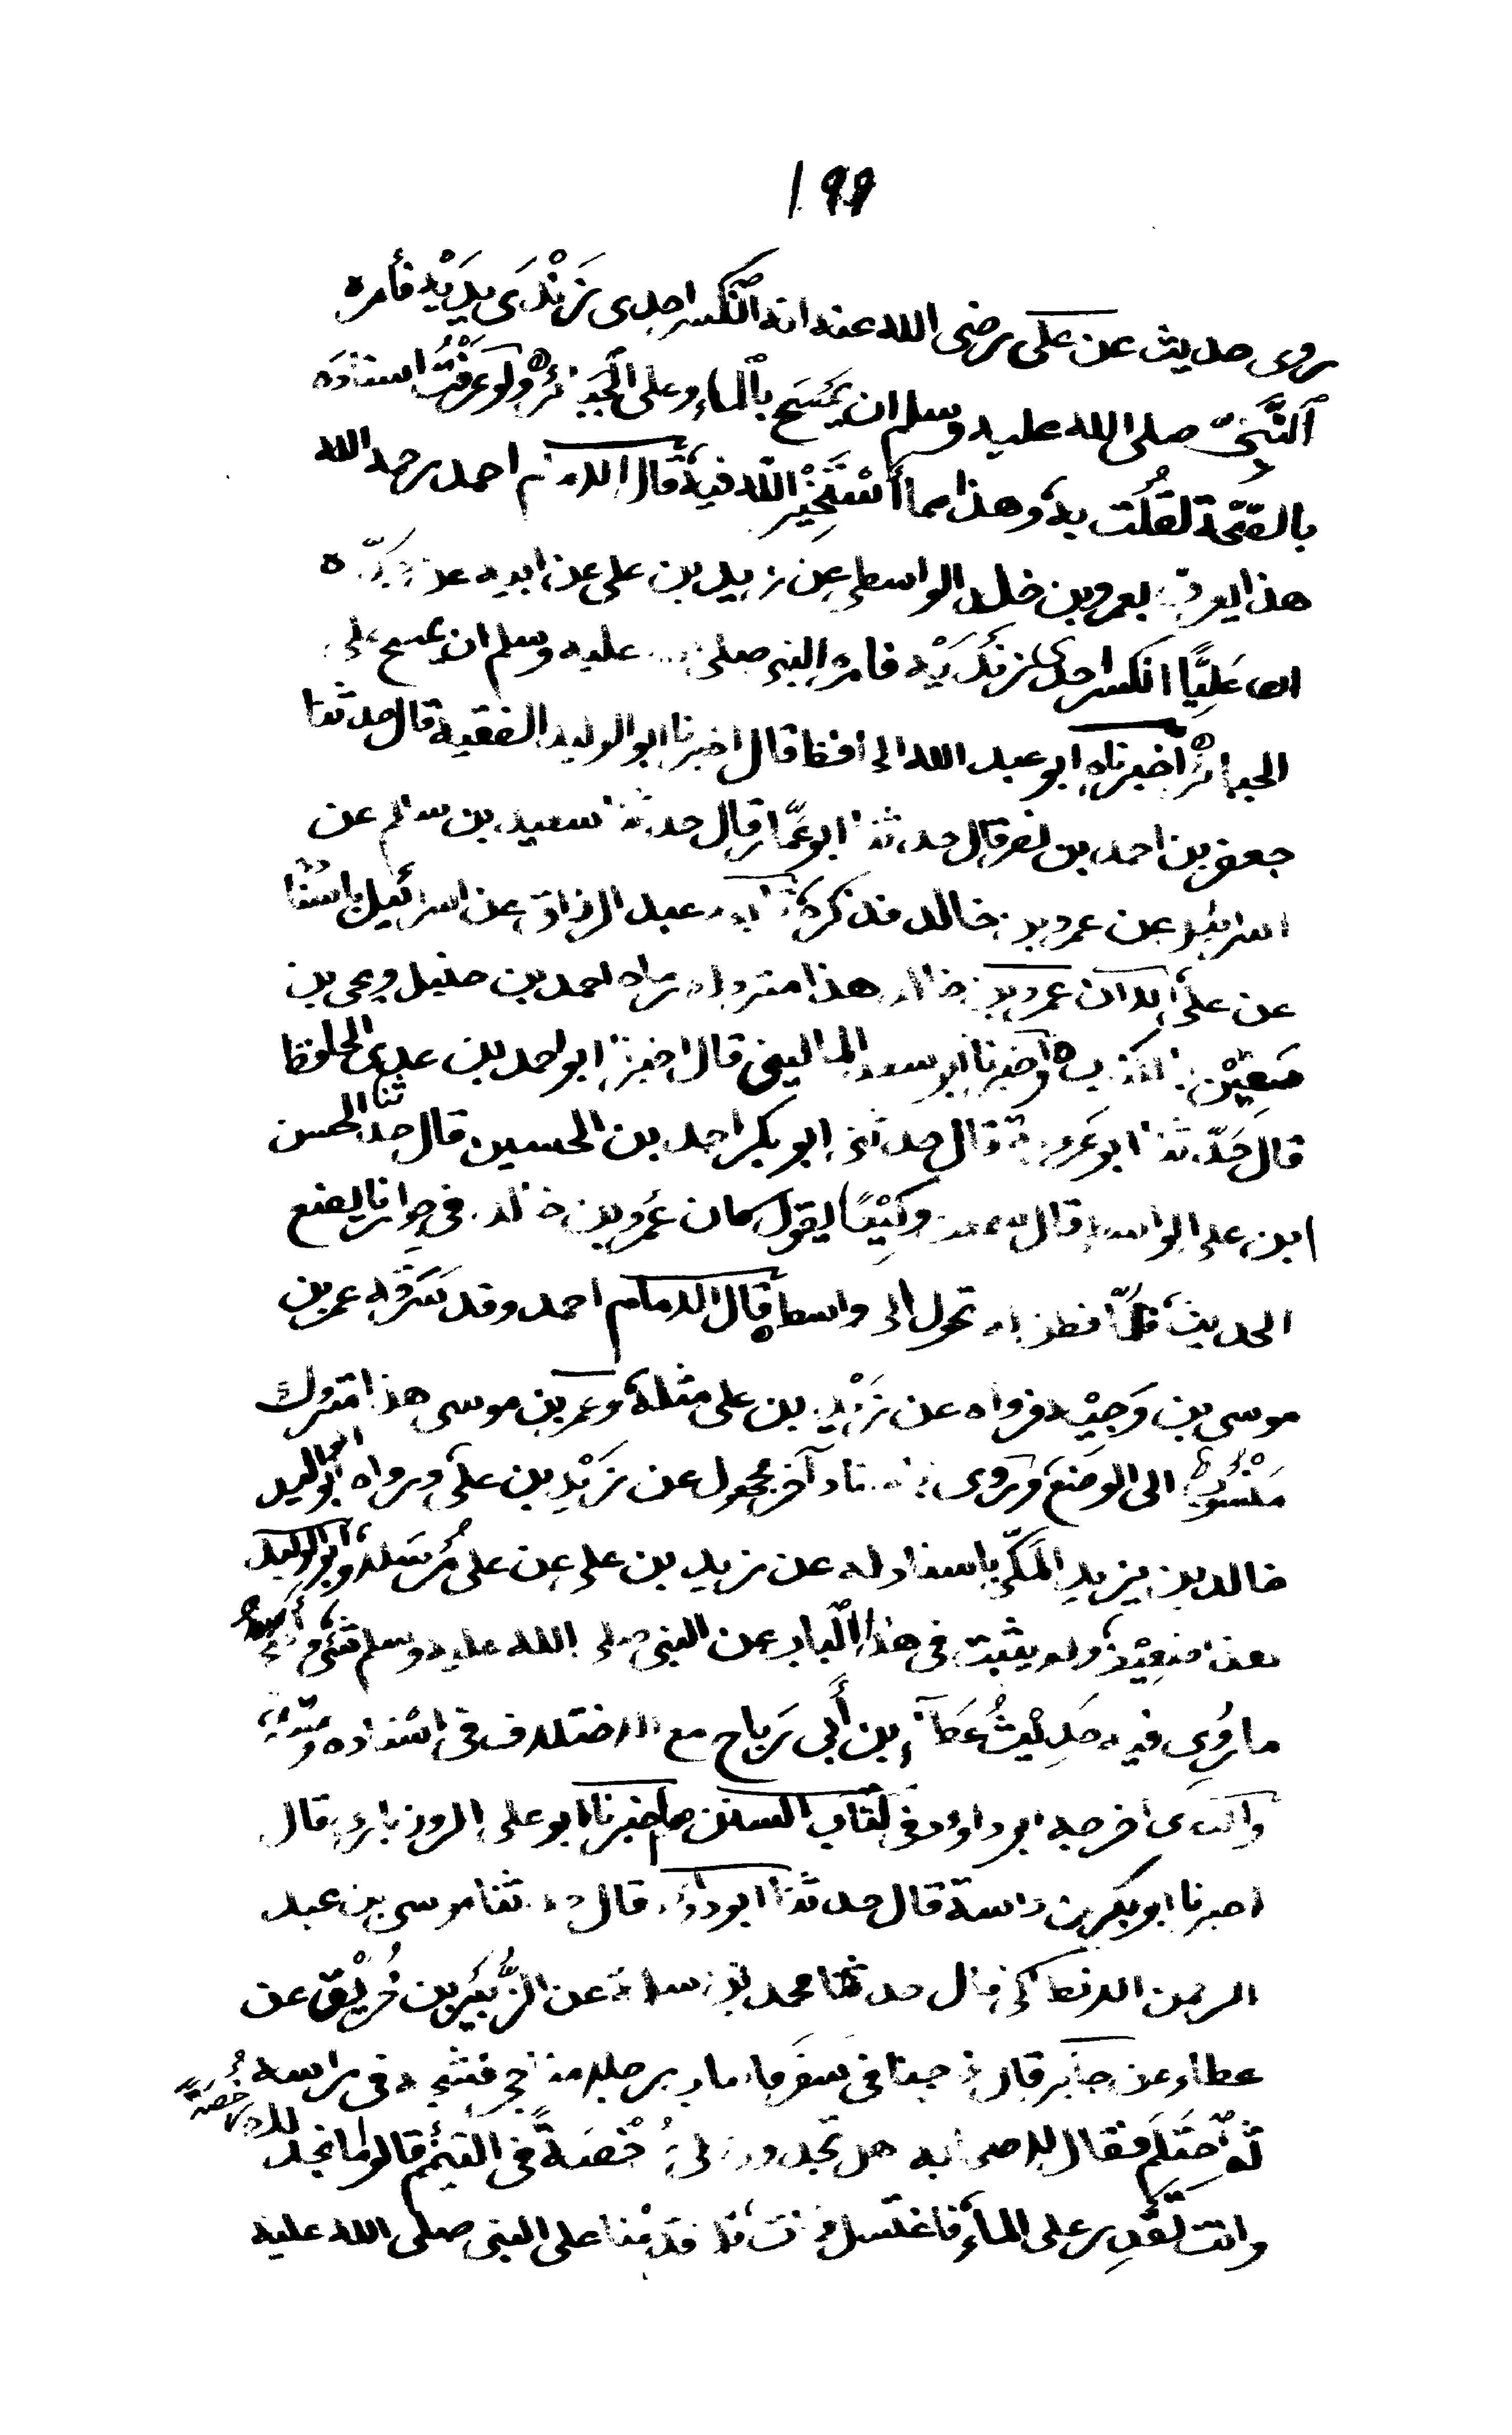 ١٩٩
روى حديث عن على رضى الله عنه انه انكسر احدى زندى يديه فأمره
النبى صلى الله عليه وسلم ان يمسح بالماء على الجبائر ولو عرفت اسناده
بالصحة لقلت به وهذا مما أستخير الله فيه قال الامام احمد رحمه الله
هذا يعرف بعمرو بن خالد الواسطى عن زيد بن على عن ابيه عن جده
ان عليًّا انكسر احدى زنديه فامره النبى صلى عليه وسلم ان يمسح على
الجبائر اخبرناه ابو عبد الله الحافظ قال اخبرنا ابو الوليد الفقيه قال حدثنا
جعفر بن احمد بن نصر قال حدثنا ابو عمّار قال حدثنا سعيد بن سالم عن
اسرائيل عن عمرو بن خالد فذكره عبد الرزاق عن اسرائيل
عن على الا ان عمرو بن خالد هذا متروك رماه احمد بن حنبل ويحى بن
معين بالكذب واخبرنا ابو سعد المالينى قال اخبرنا ابو احمد بن عدى الحافظ
قال حدّثنا ابو عروبة قال حدثنى ابو بكر احمد بن الحسين قال حدثنا الحسن
ابن على الواسطى قال سمعت وكيعًا يقول كان عمرو بن خالد فى جوارنا يضع
الحديث فلمّا فطن له تحول الى واسط قال الامام احمد وقد سرقه عمر بن
موسى بن وجيه فرواه عن زيد بن على مثله وعمر بن موسى هذا متروك
منسوب الى الوضع وروى باسناد آخر مجهول عن زيد بن على ورواه ابو الوليد
خالد بن يزيد المكّى باسناد له عن زيد بن على عن على مُرسلا وابو الوليد
هذا ضعيف ولا يثبت فى هذا الباب عن النبى صلى الله عليه وسلم شئ
ما رُوى فيه حديث عطآء بن أبى رباح مع الاختلاف فى اسناده ومتنه
والذى اخرجه ابو داؤد فى كتاب السنن اخبرنا ابو على الروذبارى قال
اخبرنا ابو بكر بن داسة قال حدثنا ابو داؤد قال حدثنا موسى بن عبد
الرحمن الانطاكى قال حدثنا محمد بن سلمة عن الزُّبَير بن خُرَيق عن
عطاء عن جابر قال خرجنا فى سفر فاصاب رجلا منا حجر فشجه فى راسه
ثم احتلم فقال لاصحابه هل تجدون لى رُخصةً فى التيمم قالوا ما نجد لك رخصةً
وانت تقدر على الماء فاغتسل فمات فلما قدمنا على النبى صلى الله عليه